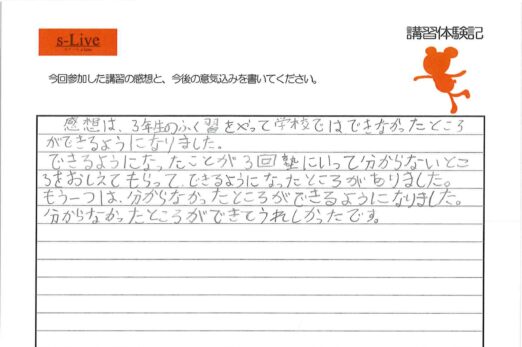 s-Live
講習体験記
今回参加した講習の感想と、今後の意気込みを書いてください。
感想は、3年生のふく習をやって学校ではできなかったところ
ができるようになりました。
できるようになったことが3回塾にいって分からないとこ
ろをおしえてもらって、できるようになったところがありました。
もう一つは、分からなかったところができるようになりました。
分からなかったところができてうれしかったです。